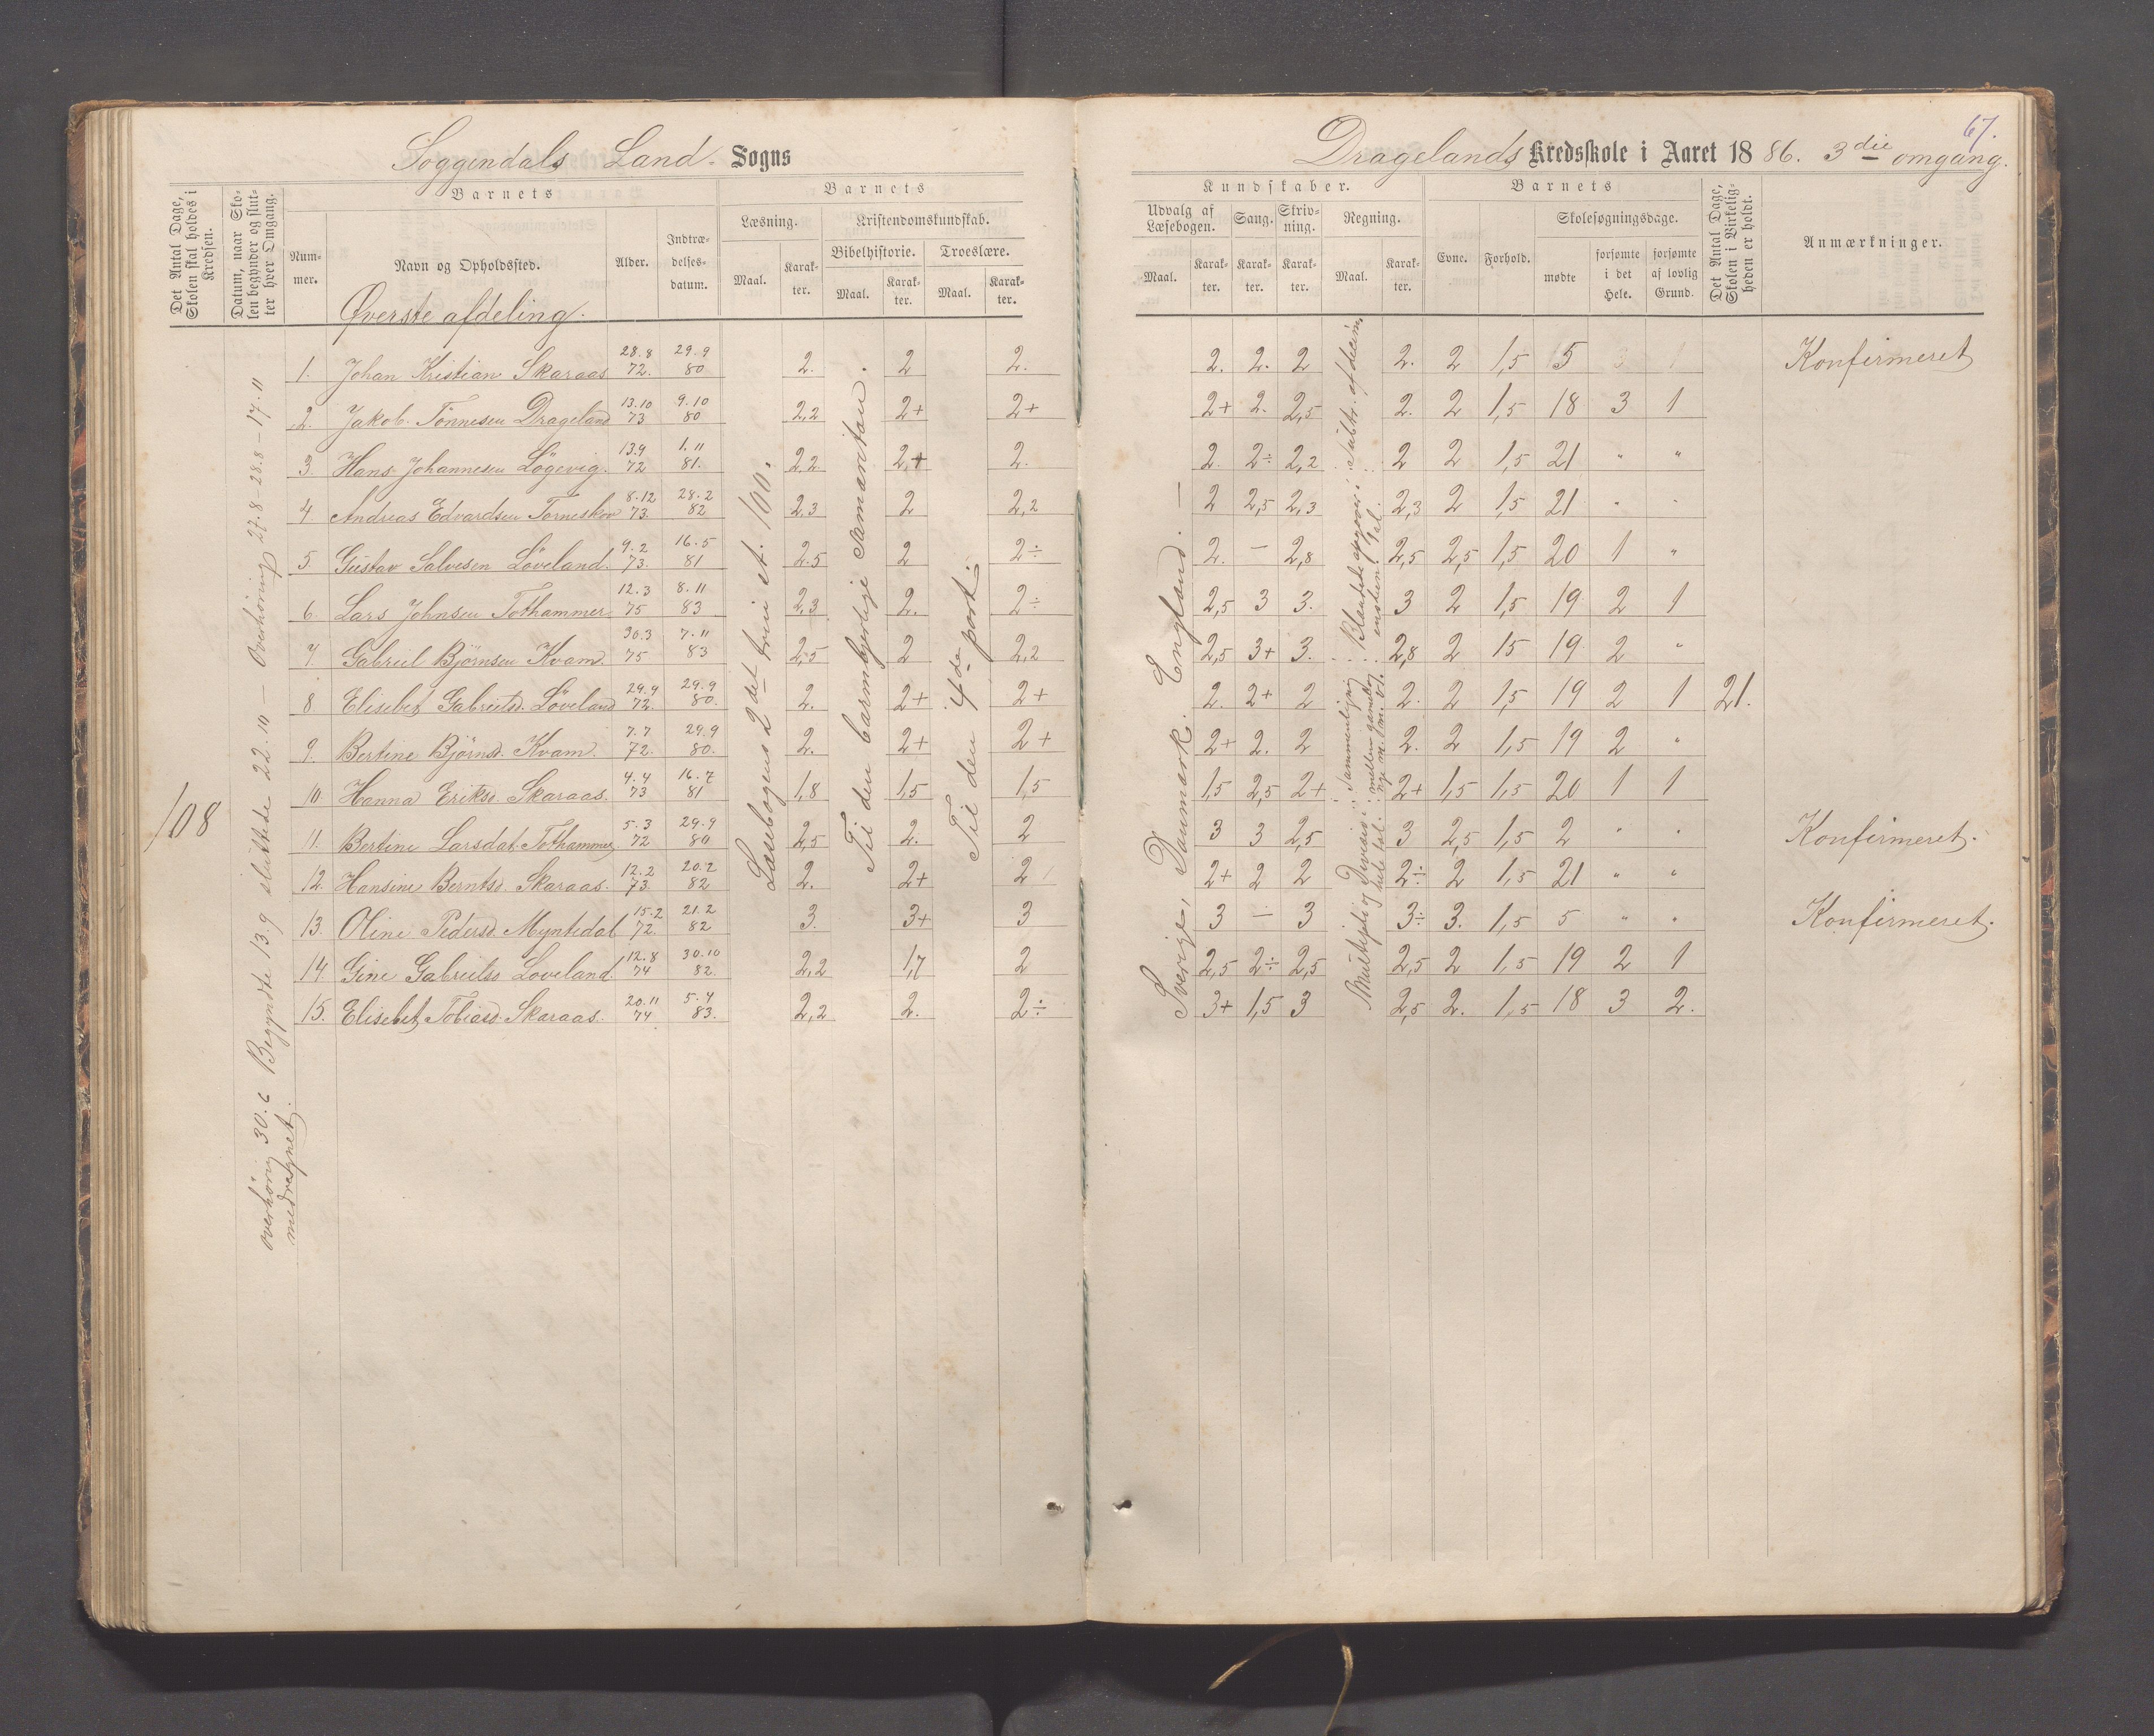 Soggendals Land- Sogns
Dragelands Kredsskole i Aaret 1886. 3die omgang.
67.
Det Antal Dage, Skolen skal holdes i Kredsen.
Datum, naar Skolen begynder og slutter hver Omgang.
Barnets
Nummer.
Navn og Opholdssted.
Alder.
Indtrædelsesdatum.
Barnets
Læsning.
Maal.
Karakter.
Kristendomskundskab.
Bibelhistorie.
Maal.
Karakter.
Troeslære.
Maal.
Karakter.
Kundskaber.
Udvalg af Læsebogen.
Maal.
Karakter.
Sang.
Karakter.
Skrivning.
Karakter.
Regning.
Maal.
Karakter.
Barnets
Evne.
Forhold.
Skolesøgningsdage.
mødte
forsømte i det Hele.
forsømte af lovlig Grund.
Det Antal Dage, Skolen i Virkeligheden er holdt.
Anmærkninger.
Øverste afdeling.
1. Johan Kristian Skaraas 28.8 72. 29.9 80 2. 2 2. 2. 2. 2 2. 2 1,5 5 3 1 Konfirmeret
2. Jakob Tönnesen Drageland 13.10 73 9.10 80 2,2 2+ 2+ 2+ 2. 2,5 2. 2 1,5 18 3 1
3. Hans Johannesen Lögevig. 13.9 72 1.11 81. 2,2 2+ 2. 2. 2÷ 2,2 2 2 1,5 21 " "
4. Andreas Edvardsen Torneskov 8.12 73. 28.2 82 2,3 2 2,2 2 2,5 2,3 2,3 2 1,5 21 " "
5. Gustav Salvesen Löveland. 9.2 73. 16.5 81 2.5 2 2÷ 2. — 2,8 2,5 2,5 1,5 20 1 "
6. Lars Johnsen Tothammer 12.3 75 8.11 83 2,3 2. 2÷ 2,5 3 3. 3 2 1,5 19 2 1
7. Gabriel Björnsen Kvam. 30.3 75 7.11 83 2,5 2 2,2 2,5 3+ 3. 2,8 2 15 19 2 "
8 Elisebet Gabrielsd. Löveland 29.9 72. 29.9 80. 2. 2+ 2+ 2. 2+ 2 2. 2 1,5 19 2 1 21.
9. Bertine Björnsd. Kvam. 7.7 72. 29.9 80. 2. 2+ 2+ 2+ 2. 2 2. 2 1,5 19 2 "
10. Hanna Eriksd. Skaraas. 4.4 73 16.7 81 1,8 1,5 1,5 1,5 2,5 2+ 2+ 1,5 1,5 20 1 1
11. Bertine Larsdat. Tothammer 5.3 72 29.9 80 2,5 2. 2 3 3 2,5 3 2,5 1,5 2 " " Konfirmeret.
12. Hansine Berntsd. Skaraas. 12.2 73. 20.2 82 2. 2+ 2 2+ 2 2 2÷ 2 1,5 21 " "
13. Oline Pedersd. Myntedal 15.2 72. 21.2 82 3. 3+ 3 3 — 3 3÷ 3. 1,5 5 " " Konfirmeret.
14. Gine Gabrielsd. Loveland. 12.8 74 30.10 82. 2,2 1,7 2 2,5 2÷ 2,5 2,5 2 1,5 19 2 1
15. Elisebet Tobiasd. Skaraas. 20.11 74 5.4 83. 2,2 2. 2÷ 3+ 1,5 3 2,5 2. 1,5 18 3 2.
108
overhöring 30.6 Begyndte 13.9 sluttede 22.10 — Overhöring 27.8-28.8-17.11
medregnet.
Læsebogens 2det trin st. 100.
Til den barmhjertige Samaritan.
Til den 4de part.
Sverige, Danmark. England. —
Multipli og Division i hele tal. Sammenligning mellem gamle og nye m. m. v. Blandede opgaver i subtr. af decim.